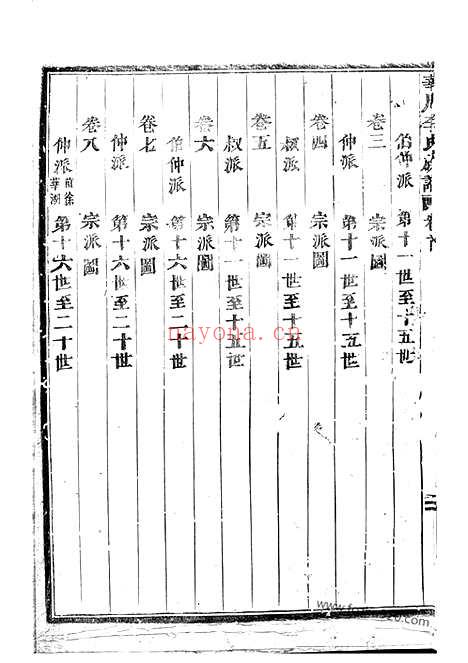 伯仲派 第十一世至十五世
卷三 宗派圖
仲派 第十一世至十五世
卷四 宗派圖
叔派 第十一世至十五世
卷五 宗派圖
叔派 第十一世至十五世
卷六 宗派圖
伯仲派 第十六世至二十
卷七 宗派圖
仲派 第十六世至二十世
卷八 宗派圖
仲派 第十六世至二十世
nayona.ca